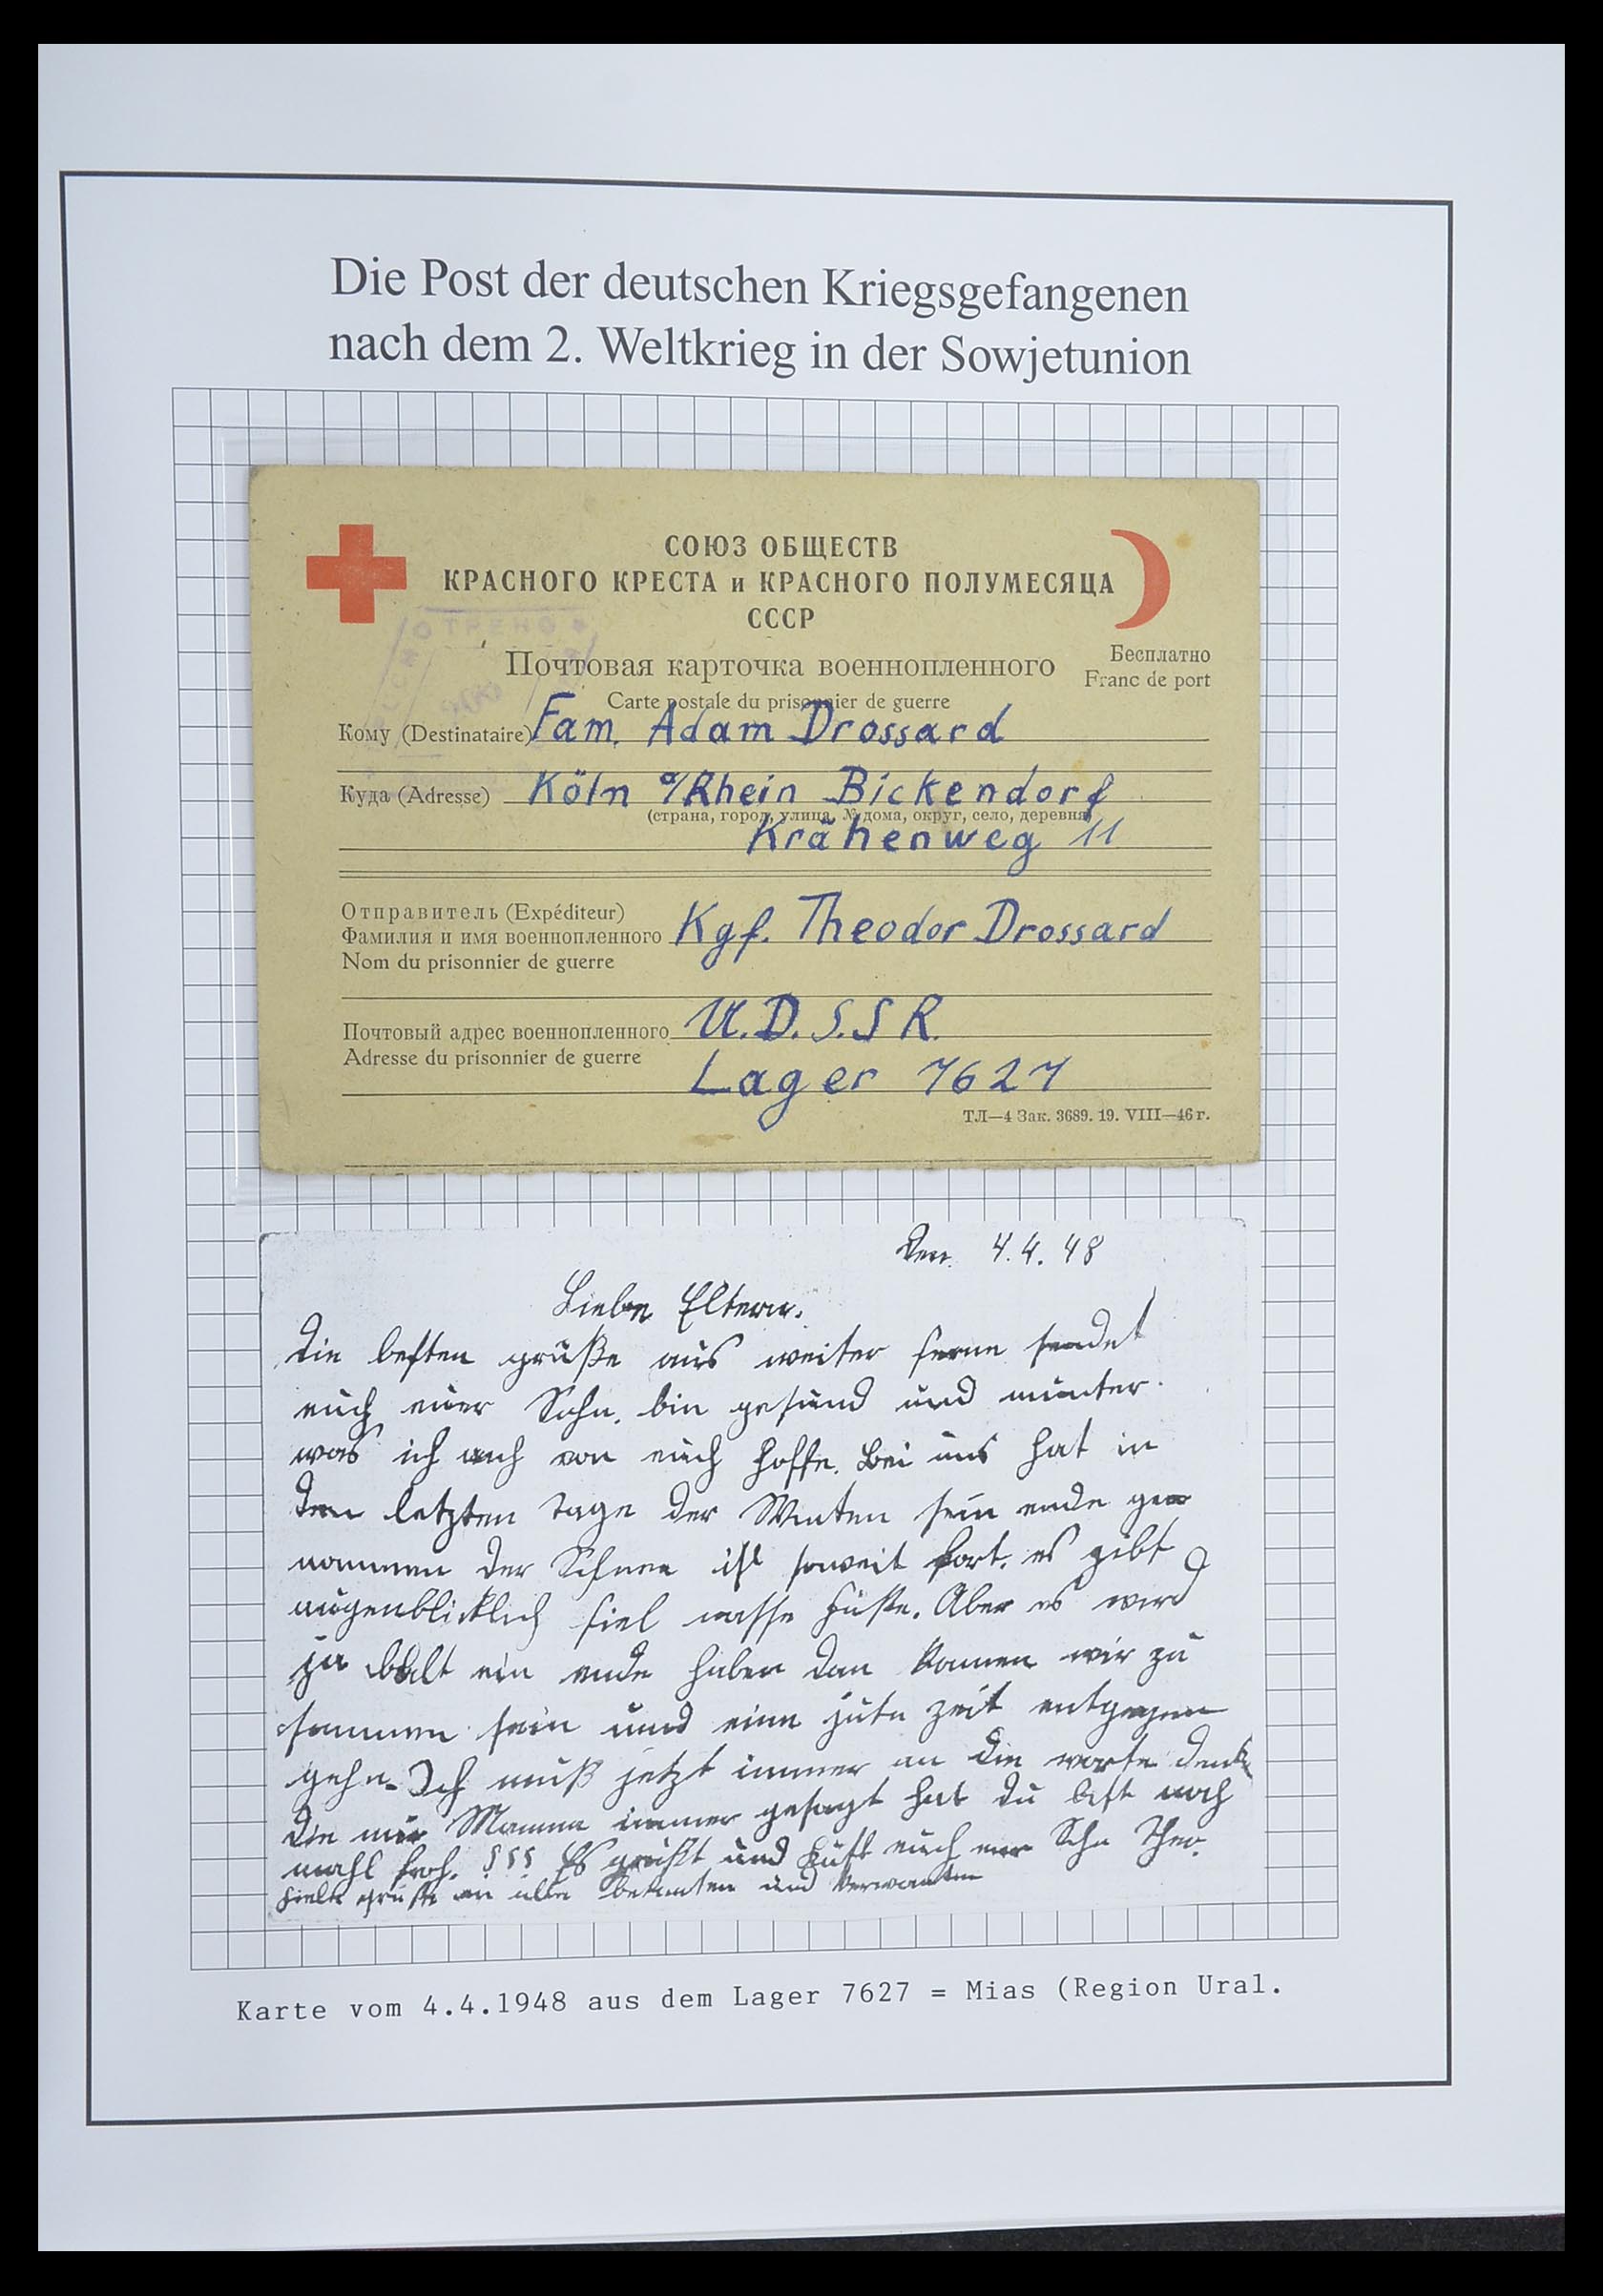 Die Post der deutschen Kriegsgefangenen
nach dem 2. Weltkrieg in der Sowjetunion
СОЮЗ ОБЩЕСТВ
КРАСНОГО КРЕСТА и КРАСНОГО ПОЛУМЕСЯЦА
СССР
Почтовая карточка военнопленного
Бесплатно
Franc de port
Carte postale du prisonnier de guerre
Кому (Destinataire) Fam. Adam Drossard
Куда (Adresse) Köln a/Rhein Bickendorf
(страна, город, улица, № дома, округ, село, деревня)
Krähenweg 11
Отправитель (Expéditeur)
Фамилия и имя военнопленного Kgf. Theodor Drossard
Nom du prisonnier de guerre
Почтовый адрес военнопленного U.D.S.S.R.
Adresse du prisonnier de guerre
Lager 7627
ТЛ—4 Зак. 3689. 19. VIII—46 г.
Den. 4.4.48
Liebe Eltern.
Die besten grüße aus weiter ferne sendet
euch euer Sohn. bin gesund und munter.
was ich auch von euch hoffe. Bei uns hat in
den letzten Tage der Winter sein ende ge
nommen der Schnee ist soweit fort. es gibt
augenblicklich fiel nasse Füße. Aber es wird
ja balt ein ende haben dan können wir zu
sammen sein und eine jute zeit entgegen
gehn. Ich muß jetzt immer an die worte denk
die mir Mamma immer gesagt hat du bist noch
mahl froh. Es grüßt und küßt euch euer Sohn Theo.
Fiele grüße an alle bekanten und Verwanten
Karte vom 4.4.1948 aus dem Lager 7627 = Mias (Region Ural.